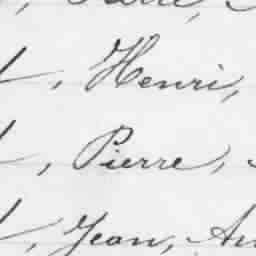 , Henri,
, Pierre,
, Jean, An